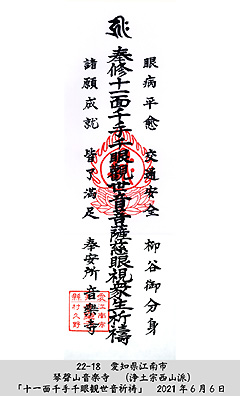 眼病平愈　交通安全　柳谷御分身
奉修十一面千手千眼観世音菩薩慈眼視衆生祈祷
諸願成就　皆了満足　奉安所　音楽寺
22-18　愛知県江南市
琴聲山音楽寺　（浄土宗西山派）
「十一面千手千眼観世音祈祷」　2021年6月6日